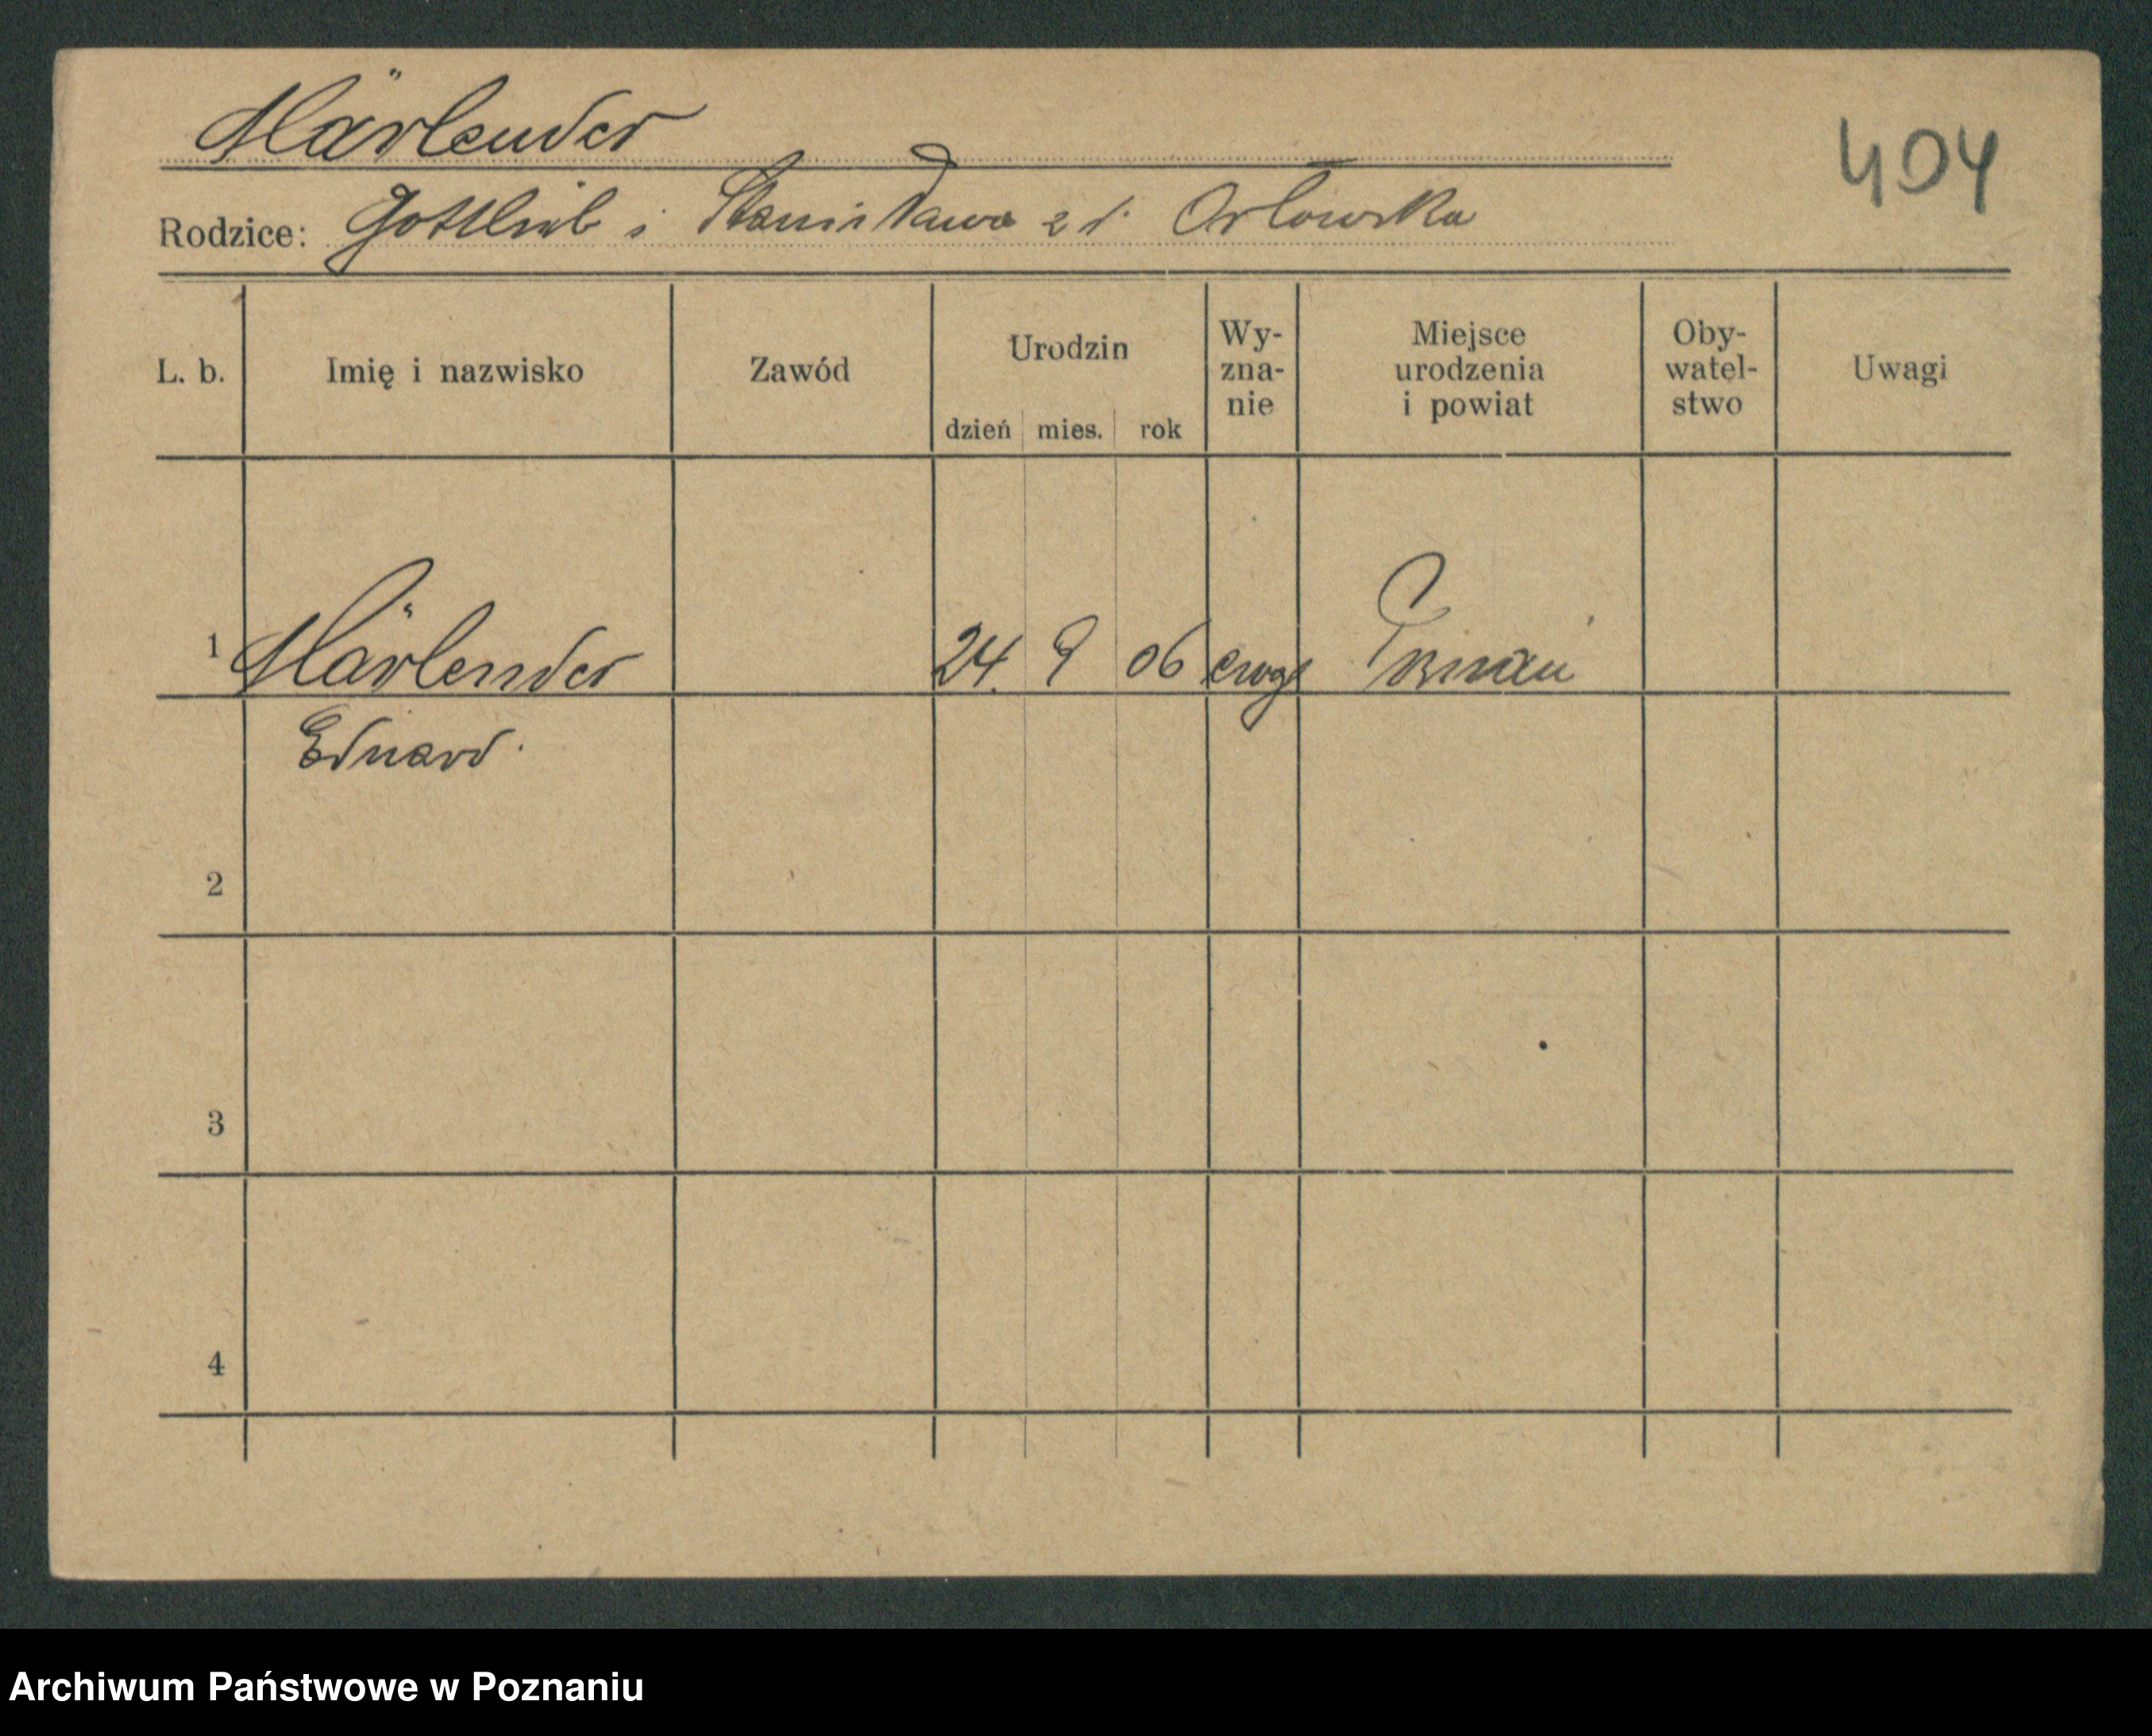 Härlender
404
Rodzice: Gottlieb i Stanisława z d. Orłowska
L. b. Imię i nazwisko Zawód Urodzin dzień mies. rok Wy-zna-nie Miejsce urodzenia i powiat Oby-watel-stwo Uwagi
1 Härlender 24. 9 06 ewgl Poznań
Eduard.
2
3
4
Archiwum Państwowe w Poznaniu